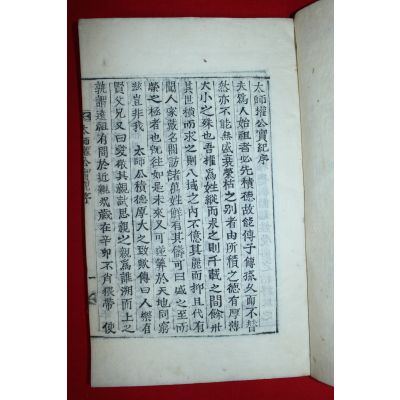 太師權公實紀序
夫爲人始祖者必先積德故能傳子傳孫久而不替
然亦不能無盛衰榮枯之别者由所積之德有厚薄
大小之殊也吾權爲姓縱而求之則千載之間餘卅
其世橫而求之則八域之內不億其麗而抑且代有
聞人家嚴名閥訪諸萬姓鮮有其儔可曰盛之至而
榮之極者也旣往如是未來又可於天地同窮
玆豈非我 太師公積德厚大之致歟傳曰人樂有
賢父兄又曰愛敬其親試思親之親爲誰溯而上之
孰謂遠祖有間於近親哉歲在辛卯不肖猥帶 使
太師權公實紀序 一